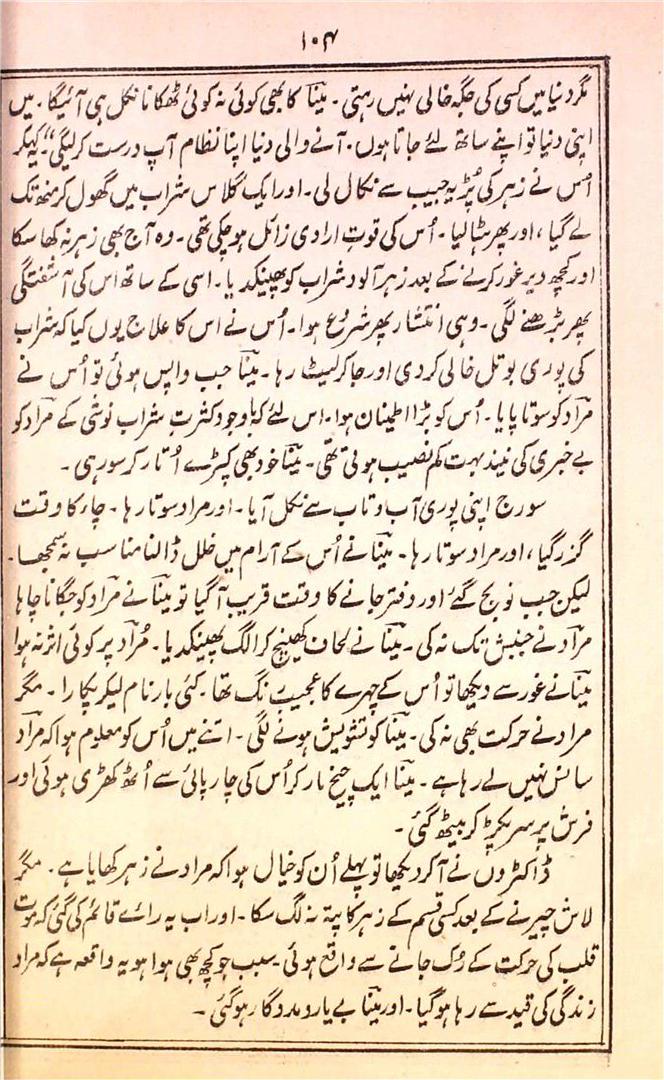 ۱۰۴
مگر دنیا میں کسی کی جگہ خالی نہیں رہتی ۔ مینؔا کا بھی کوئی نہ کوئی ٹھکانا نکل ہی آئیگا ۔ میں
اپنی دنیا تو اپنے ساتھ لئے جاتا ہوں ۔ آنے والی دنیا اپنا نظام آپ درست کرلیگی“۔ یہ کہکر
اُس نے زہر کی پُڑیہ جیب سے نکال لی ۔ اور ایک گلاس شراب میں گھول کر منھ تک
لے گیا ، اور پھر ہٹا لیا ۔ اُس کی قوتِ ارادی زائل ہوچکی تھی ۔ وہ آج بھی زہر نہ کھا سکا
اور کچھ دیر غور کرنے کے بعد زہر آلود شراب کو پھینکدیا ۔ اسی کے ساتھ اس کی آشفتگی
پھر بڑھنے لگی ۔ وہی انتشار پھر شروع ہوا ۔ اُس نے اس کا علاج یوں کیا کہ شراب
کی پوری بوتل خالی کردی اور جاکر لیٹا رہا ۔ مینؔا جب واپس ہوئی تو اُس نے
مرؔاد کو سوتا پایا ۔ اُس کو بڑا اطمینان ہوا ۔ اس لئے کہ باوجود کثرتِ شراب نوشی کے مرؔاد کو
بے خبری کی نیند بہت کم نصیب ہوئی تھی ۔ مینؔا خود بھی کپڑے اُتار کر سو رہی ۔
سورج اپنی پوری آب و تاب سے نکل آیا ۔ اور مراد سوتا رہا ۔ چار کا وقت
گزر گیا ، اور مراد سوتا رہا ۔ مینؔا نے اُس کے آرام میں خلل ڈالنا مناسب نہ سمجھا ۔
لیکن جب نو بج گئے اور دفتر جانے کا وقت قریب آگیا تو مینؔا نے مرؔاد کو جگانا چاہا
مرؔاد نے جنبش تک نہ کی ۔ مینؔا نے لحاف کھینچ کر الگ پھینکدیا ۔ مُرؔاد پر کوئی اثر نہ ہوا
مینؔا نے غور سے دیکھا تو اُس کے چہرے کا عجیب رنگ تھا ۔ کئی بار نام لیکر پکارا ۔ مگر
مراد نے حرکت بھی نہ کی ۔ مینؔا کو تشویش ہونے لگی ۔ اتنے میں اُس کو معلوم ہوا کہ مرؔاد
سانس نہیں لے رہا ہے ۔ مینؔا ایک چیخ مار کر اُس کی چارپائی سے اُٹھ کھڑی ہوئی اور
فرش پر سر پکڑ کر بیٹھ گئی ۔
ڈاکٹروں نے آکر دیکھا تو پہلے اُن کو خیال ہوا کہ مراد نے زہر کھایا ہے ۔ مگر
لاش چیرنے کے بعد کسی قسم کے زہر کا پتہ نہ لگ سکا ۔ اور اب یہ رائے قائم کی گئی کہ موت
قلب کی حرکت کے رُک جانے سے واقع ہوئی ۔ سبب جو کچھ بھی ہوا ہو یہ واقعہ ہے کہ مراد
زندگی کی قید سے رہا ہوگیا ۔ اور مینؔا بے یار و مددگار ہوگئی ۔